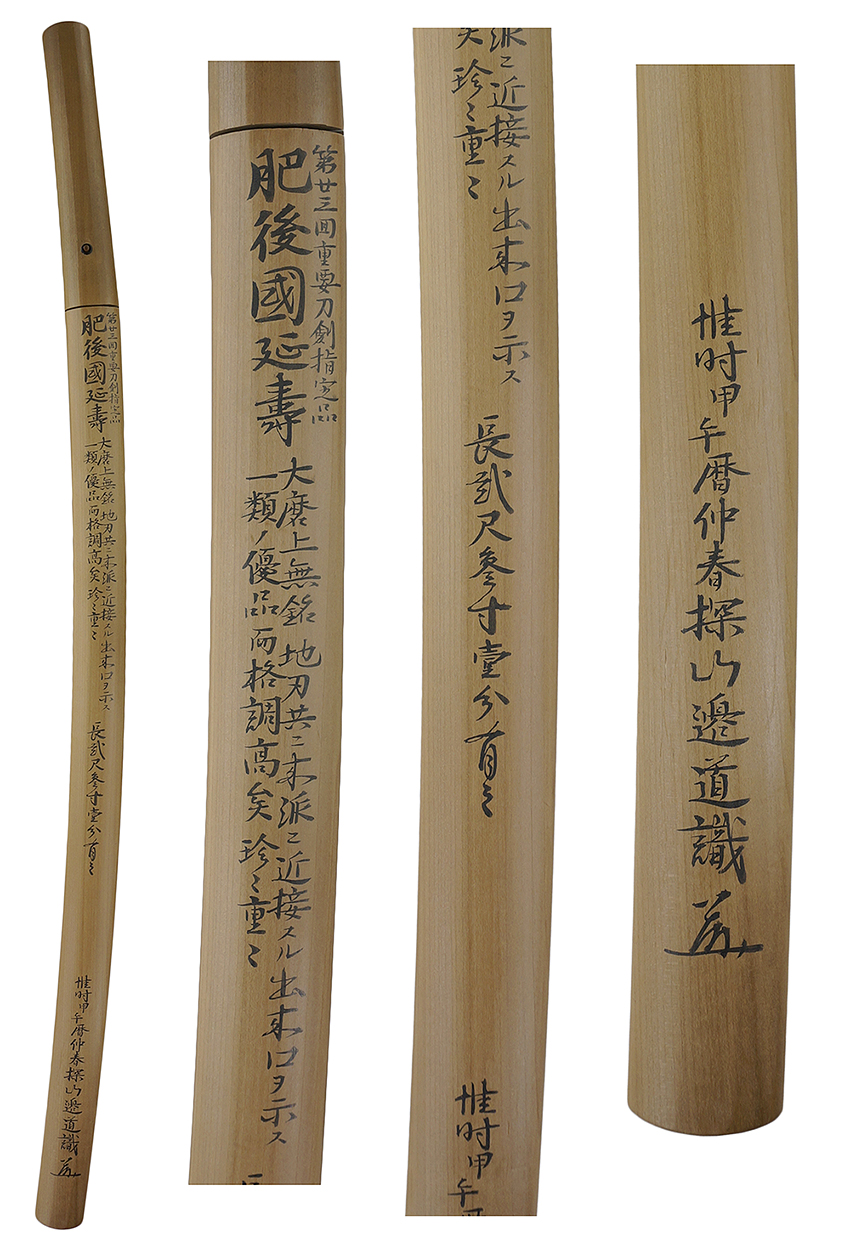 第廿三回重要刀劍指定品
肥後國延壽
大磨上無銘地刃共ニ来派ニ近接スル出来口ヲ示ス
一類ノ優品而格調高矣珍〻重〻
長貳尺參寸壹分有之
惟時甲午暦仲春探山邉道識
第廿三回重要刀劍指定品
肥後國延壽
大磨上無銘地刃共ニ来派ニ近接スル出来口ヲ示ス
一類ノ優品而格調高矣珍〻重〻
派ニ近接スル出来口ヲ示ス
矣珍〻重〻
長貳尺參寸壹分有之
惟時甲午
惟時甲午暦仲春探山邉道識